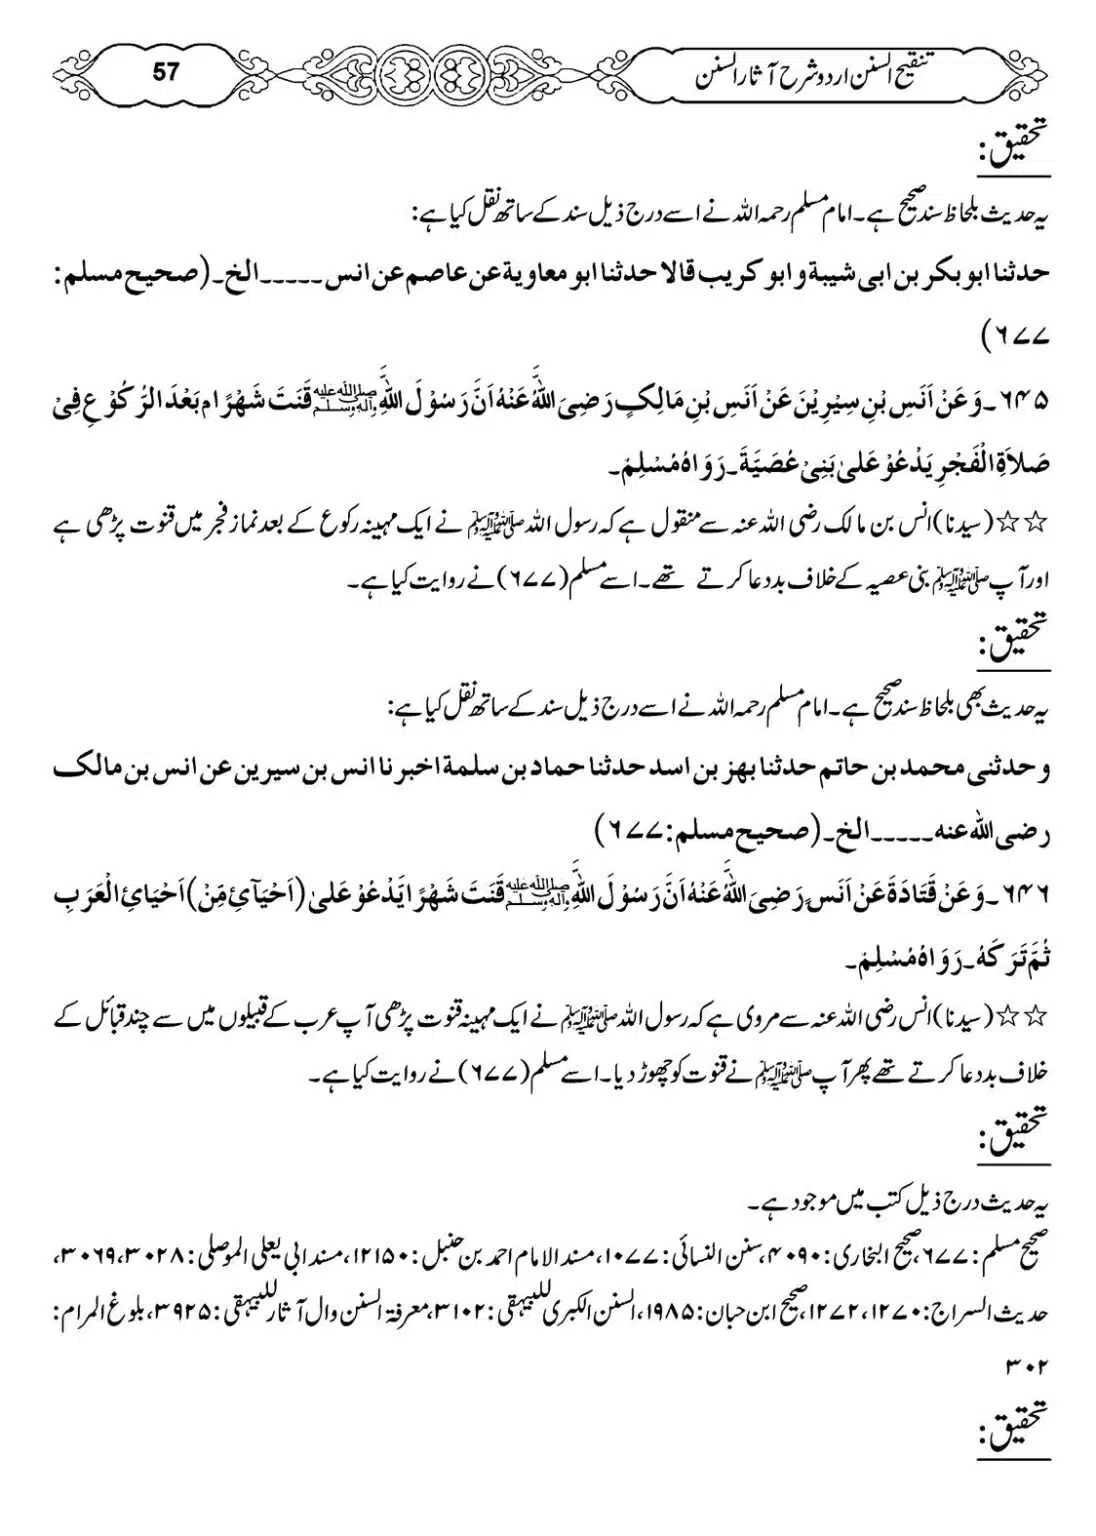 تنقیح السنن اردو شرح آثار السنن
57
تحقیق:
یہ حدیث بلحاظ سند صحیح ہے۔ امام مسلم رحمہ اللہ نے اسے درج ذیل سند کے ساتھ نقل کیا ہے:
حدثنا ابوبکر بن ابی شیبة و ابو کریب قالا حدثنا ابو معاویة عن عاصم عن انس ۔۔۔۔۔ الخ۔ (صحیح مسلم:
۶۷۷)
۶۴۵۔ وَعَنْ اَنَسِ بْنِ سِیْرِیْنَ عَنْ اَنَسِ بْنِ مَالِکٍ رَضِیَ اللہُ عَنْهُ اَنَّ رَسُوْلَ اللہِ ﷺ قَنَتَ شَهْرًا م بَعْدَ الرُّکُوْعِ فِیْ
صَلاَةِ الْفَجْرِ یَدْعُوْ عَلیٰ بَنِیْ عُصَیَّةَ۔ رَوَاهُ مُسْلِمٌ۔
☆☆ (سیدنا) انس بن مالک رضی اللہ عنہ سے منقول ہے کہ رسول اللہ ﷺ نے ایک مہینہ رکوع کے بعد نماز فجر میں قنوت پڑھی ہے
اور آپ ﷺ بنی عصیہ کے خلاف بددعا کرتے تھے۔ اسے مسلم (۶۷۷) نے روایت کیا ہے۔
تحقیق:
یہ حدیث بھی بلحاظ سند صحیح ہے۔ امام مسلم رحمہ اللہ نے اسے درج ذیل سند کے ساتھ نقل کیا ہے:
و حدثنی محمد بن حاتم حدثنا بهز بن اسد حدثنا حماد بن سلمة اخبرنا انس بن سیرین عن انس بن مالک
رضی اللہ عنه ۔۔۔۔۔ الخ۔ (صحیح مسلم: ۶۷۷)
۶۴۶۔ وَعَنْ قَتَادَةَ عَنْ اَنَسٍ رَضِیَ اللہُ عَنْهُ اَنَّ رَسُوْلَ اللہِ ﷺ قَنَتَ شَهْرًا یَدْعُوْ عَلیٰ (اَحْیَآئٍ مِّنْ) اَحْیَائِ الْعَرَبِ
ثُمَّ تَرَکَهُ۔ رَوَاهُ مُسْلِمٌ۔
☆☆ (سیدنا) انس رضی اللہ عنہ سے مروی ہے کہ رسول اللہ ﷺ نے ایک مہینہ قنوت پڑھی آپ عرب کے قبیلوں میں سے چند قبائل کے
خلاف بددعا کرتے تھے پھر آپ ﷺ نے قنوت کو چھوڑ دیا۔ اسے مسلم (۶۷۷) نے روایت کیا ہے۔
تحقیق:
یہ حدیث درج ذیل کتب میں موجود ہے۔
صحیح مسلم: ۶۷۷، صحیح البخاری: ۴۰۹۰، سنن النسائی: ۱۰۷۷، مسند الامام احمد بن حنبل: ۱۲۱۵۰، مسند ابی یعلی الموصلی: ۳۰۲۸، ۳۰۶۹،
حدیث السراج: ۱۲۷۰، ۱۲۷۲، صحیح ابن حبان: ۱۹۸۵، السنن الکبری للبیہقی: ۳۱۰۲، معرفۃ السنن وال آثار للبیہقی: ۳۹۲۵، بلوغ المرام:
۳۰۲
تحقیق: